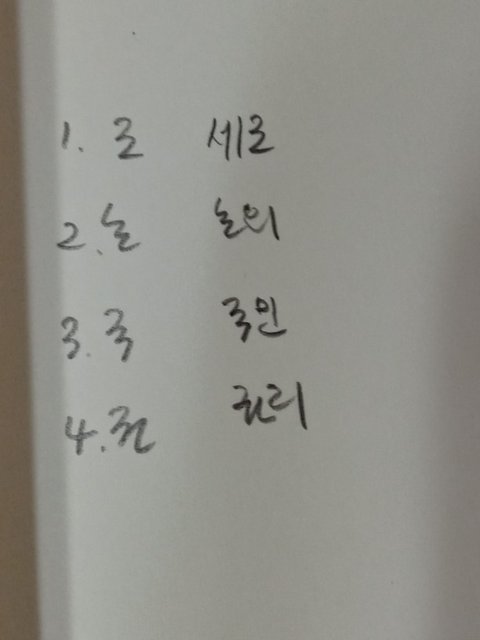 1. 로 세로
2. 논 논의
3. 국 국민
4. 권 권리